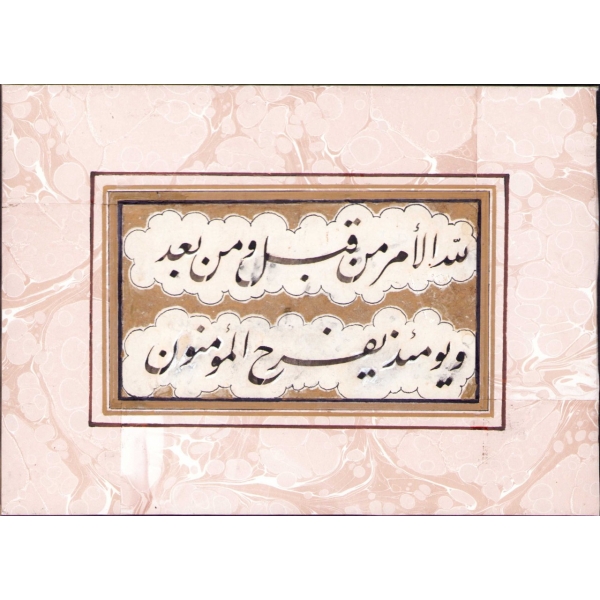 لله الأمر من قبل ومن بعد
ويومئذ يفرح المؤمنون